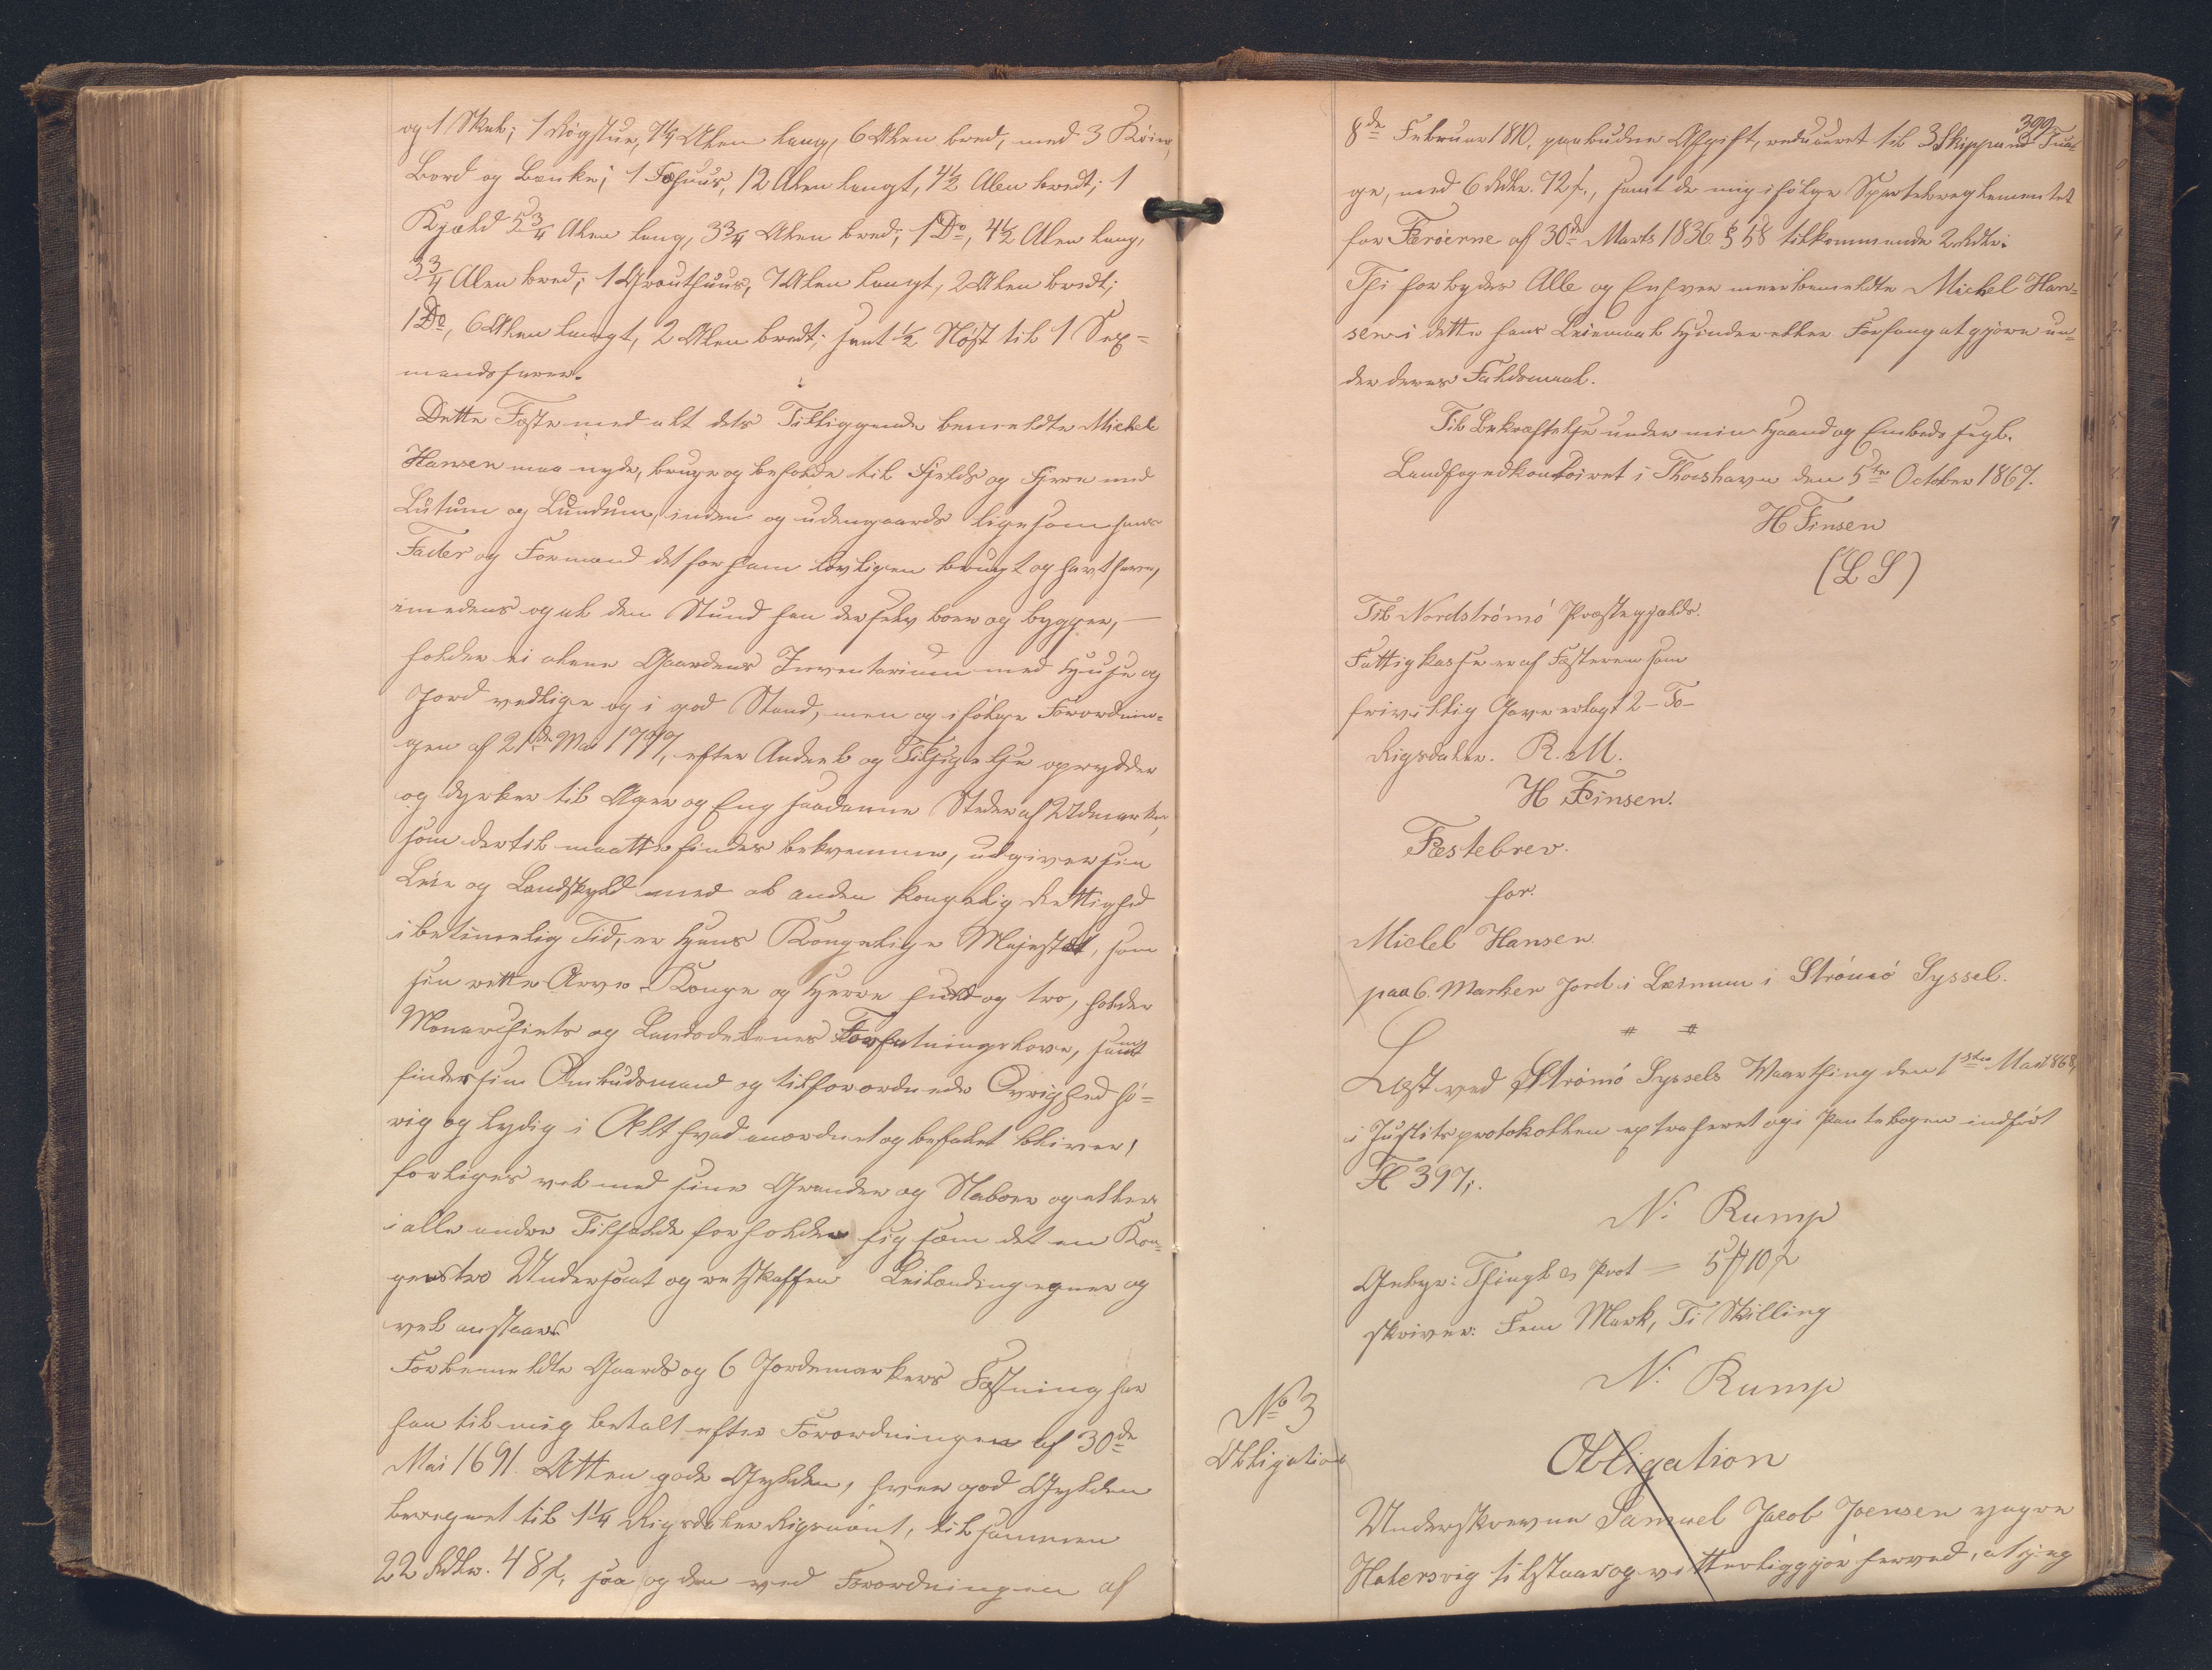 og 1 Skab; 1 Røgstue, 7¼ Alen lang, 6 Alen bred, med 3 Køier,
Bord og Bænke; 1 Fæhuus, 12 Alen langt, 4½ Alen bredt; 1
Kjæld 5¾ Alen lang, 3¾ Alen bred; 1 Do, 4½ Alen lang,
3¾ Alen bred; 1 Grouthuus, 7 Alen langt, 2 Alen bredt;
1 Do, 6 Alen langt, 2 Alen bredt; samt ½ Nøst til 1 Sex-
mandsfarer.
Dette Fæste med alt dets Tilliggende bemeldte Michel
Hansen maa nyde, bruge og beholde til Fjelds og Fjære med
Lutum og Lundum, inden og udengaards ligesom hans
Fader og Formand det for ham lovligen brugt og havt haver,
imedens og al den Stund han der selv boer og bygger, —
holder ei alene Gaardens Inventarium med Huse og
Jord vedlige og i god Stand, men og ifølge Forordnin-
gen af 21de Mai 1777, efter Andeel og Tilsigelse oprydder
og dyrker til Ager og Eng saadanne Steder af Udmarken,
som dertil maatte findes beqvemme, udgiver sin
Leie og Landskyld med al anden kongelig Rettighed
i betimelig Tid, er Hans Kongelige Majestæt, som
sin rette Arve-Konge og Herre huld og tro, holder
Monarchiets og Landsdelenes Forfatningslove, samt
findes sin Ombudsmand og tilforordnede Øvrighed hø-
rig og lydig i Alt hvad anordnet og befalet bliver,
forliges vel med sine Grander og Naboer og ellers
i alle andre Tilfælde forholder sig som det en Kon-
gens tro Undersaat og retskaffen Leilænding egner og
vel anstaaer.
Forbemeldte Gaards og 6 Jordemarkers Fæstning har
han til mig betalt efter Forordningen af 30de
Mai 1691. Atten gode Gylden, hver god Gylden
beregnet til 1¼ Rigsdaler Rigsmønt, tilsammen
22 Rdlr. 48 s, saa og den ved Forordningen af
399
8de Februar 1810, paabudne Afgift, reduceret til 3 Skippund Tua-
ge, med 6 Rdlr. 72 s., samt de mig ifølge Sportelreglementet
for Færøerne af 30de Marts 1836 § 58 tilkommende 2 Rdlr.
Thi forbydes Alle og Enhver meerbemeldte Michel Han-
sen i dette hans Leiemaal Hinder eller Forfang at gjøre un-
der deres Faldsmaal.
Til Bekræftelse under min Haand og Embeds Segl.
Landfogedkontoiret i Thorshavn den 5te October 1867.
H Finsen
(L S)
Til Nordstrømø Præstegjælds.
Fattigkasse er af Fæsteren som
frivillig Gave erlagt 2 - To -
Rigsdaler. R. M.
H Finsen.
Fæstebrev.
for.
Michel Hansen
paa 6. Marker Jord i Leinum i Strømø Syssel.
Læst ved Strømø Syssels Vaarthing den 1ste Mai 1868,
i Justitsprotokollen extraheret og i Pantebogen indført
Fl 397,.
N: Rump
Gebyr: Thingl og Prot = 5 ℳ 10 s
skriver: Fem Mark, Ti Skilling
N: Rump
No 3
Obligation
Obligation
Underskrevne Samuel Jacob Joensen yngre
Haldersvig tilstaaer og vitterliggjør herved, at jeg